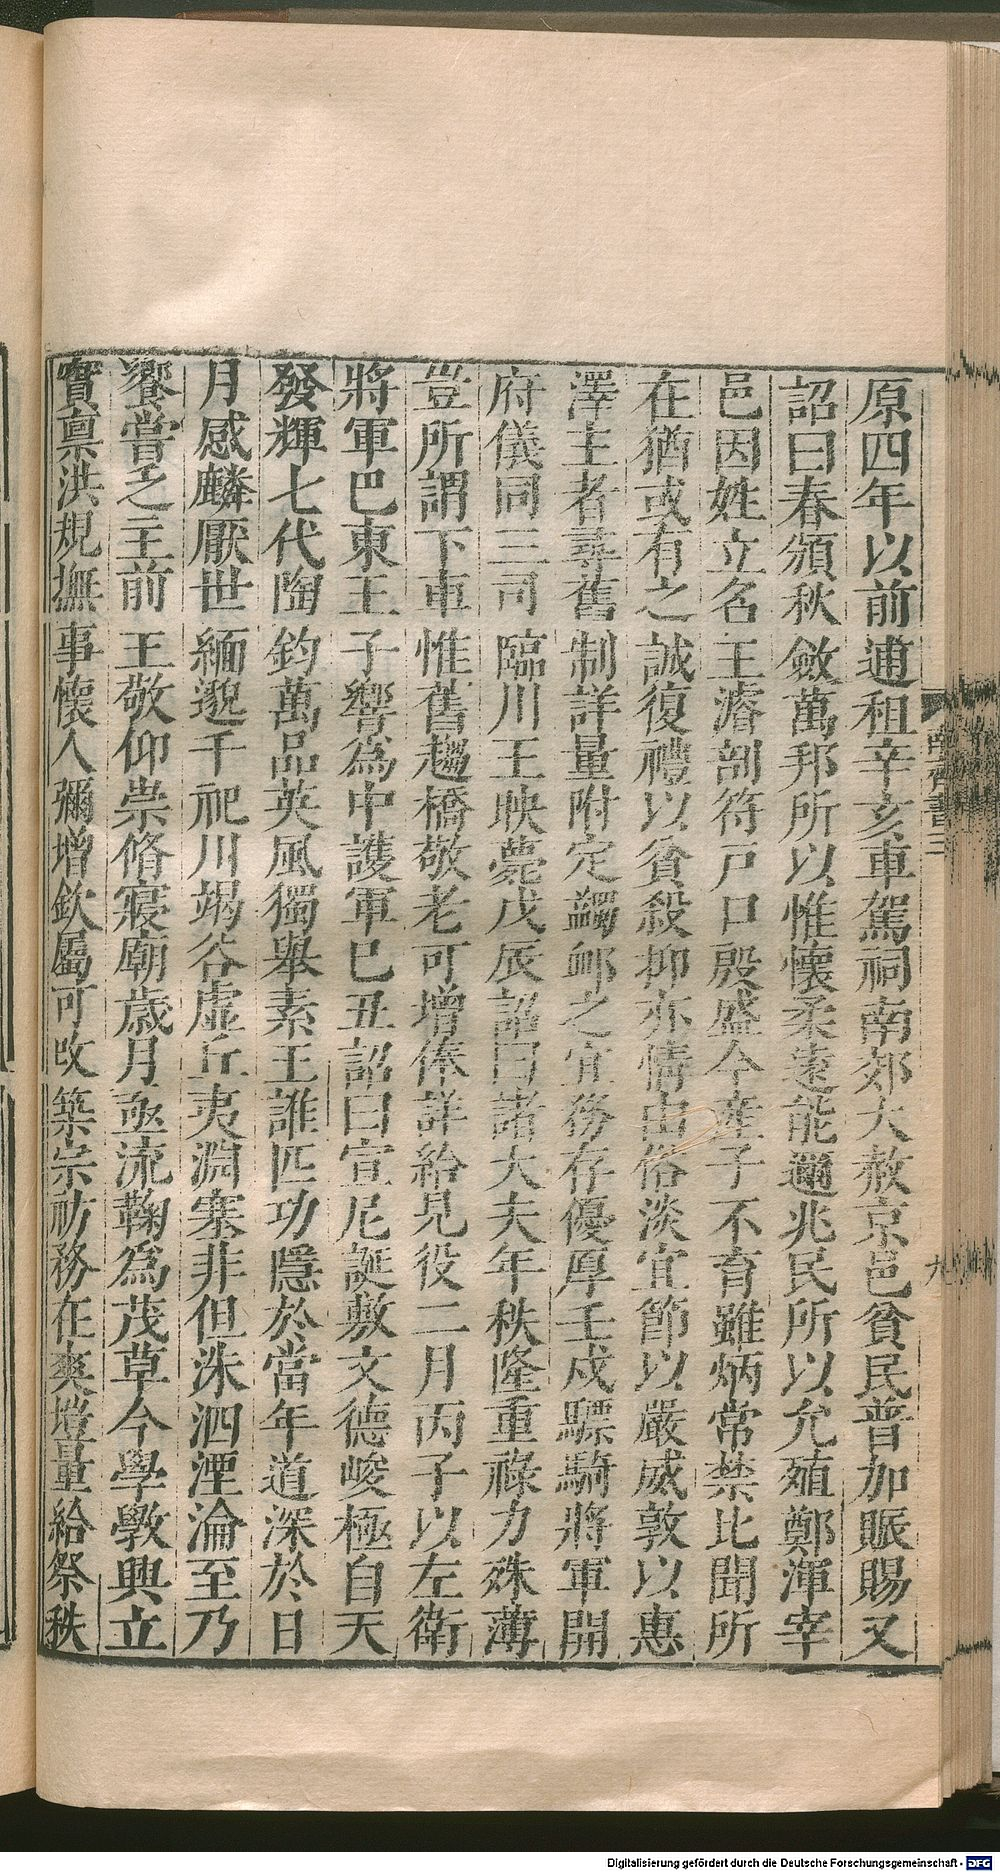 原四年以前逋租辛亥車駕祠南郊大赦京邑貧民普加賑賜又
詔曰春頒秋斂萬邦所以惟懷柔遠能邇兆民所以允殖鄭渾宰
邑因姓立名王濬剖符戸口殷盛今產子不育雖炳常禁比聞所
在猶或有之誠復禮以貧殺抑亦情由俗淡宜節以嚴威敦以惠
澤主者尋舊制詳量附定蠲䘏之宜務存優厚壬戍驃騎將軍開
府儀同三司臨川王映薨戊辰詔曰諸大夫年秩隆重祿力殊薄
豈所謂下車惟舊趨橋敬老可增俸詳給見役二月丙子以左衛
將軍巴東王子響為中護軍巳丑詔曰宣尼誕敷文德峻極自天
發輝七代陶鈞萬品英風獨舉素王誰匹功隱於當年道深於日
月感麟厭世緬邈千祀川竭谷虛丘夷淵塞非但洙泗湮淪至乃
饗嘗之主前王敬仰崇脩寢廟歲月亟流鞠為茂草今學斆興立
實稟洪規撫事懷人彌增欽屬可攺築宗祊務在爽塏量給祭秩
南齊書三
九
Digitalisierung gefördert durch die Deutsche Forschungsgemeinschaft - DFG